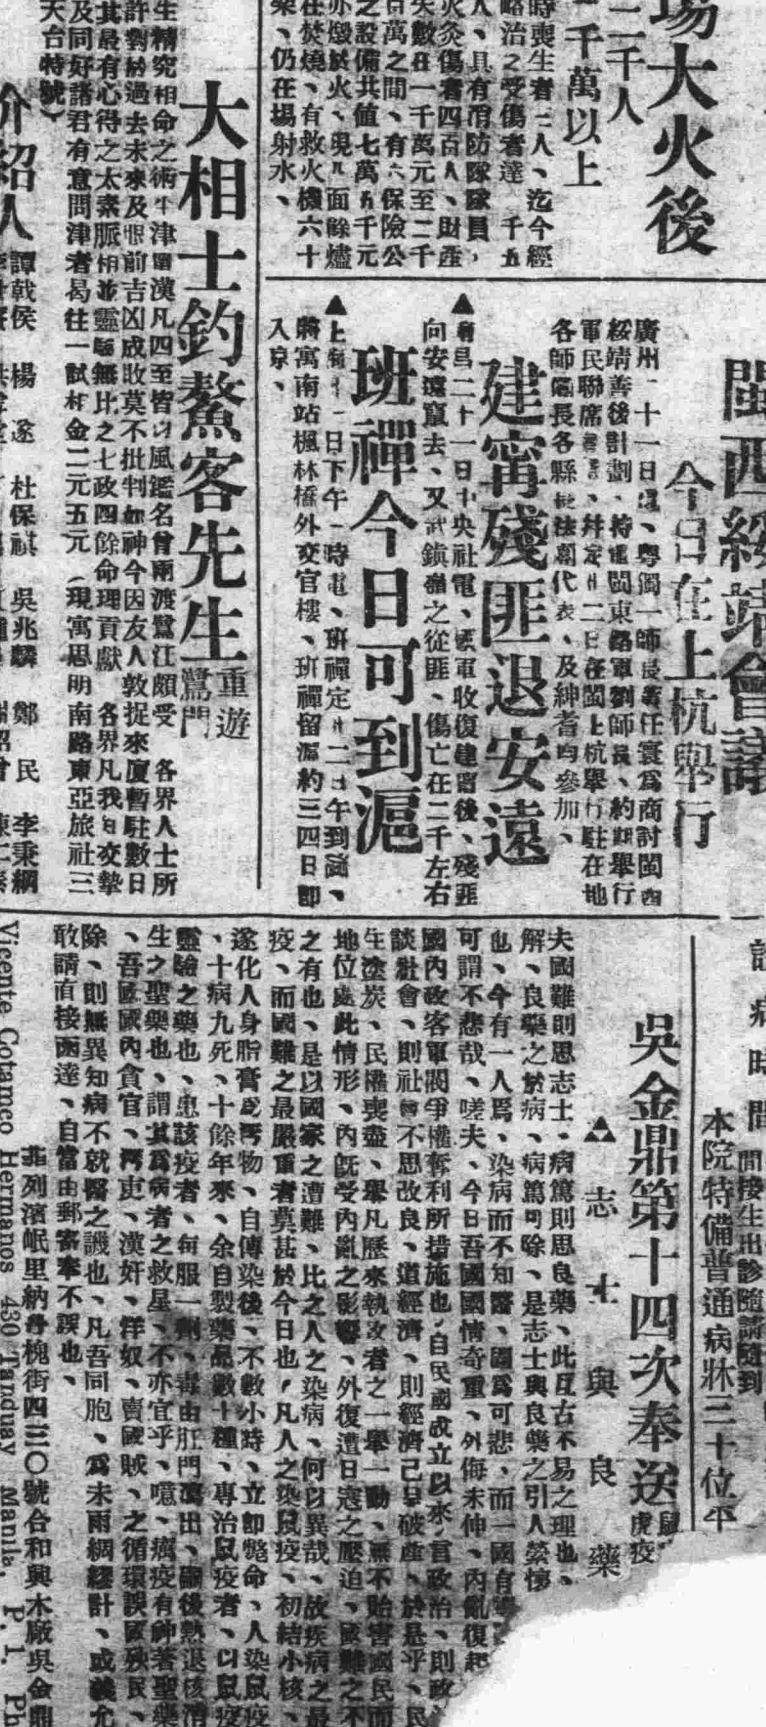 場大火後
二千人
千萬以上
時喪生者三人、迄今經
略治之受傷者達 千五
人、具有消防隊隊員，
火灸傷者四百人、財產
失數在一千萬元至二千
百萬之間、有六保險公
之設備共值七萬五千元
亦燬於火、現九面餘燼
在焚燒、有救火機六十
架、仍在場射水、
閩西綏靖會議
今日在上杭舉行
廣州二十一日電、粵獨一師長
綏靖善後計劃、特電閩東路軍劉師長、約期舉行
軍民聯席會議、幷定廿二日在閩上杭舉行駐在地
各師團長各縣長法團代表、及紳耆均參加、
建甯殘匪退安遠
▲南昌二十一日中央社電、收復建甯後、殘匪
向安遠竄去、又武鎮嶺之從匪、傷亡在二千左右
班禪今日可到滬
▲上海廿一日下午一時電、班禪定廿二日午到滬、
將寓南站楓林橋外交官樓、班禪留滬約三四日即
入京、
大相士釣鰲客先生
重遊
鷺門
生精究相命之術平津滬漢凡四至皆以風鑑名曾兩渡鷺江頗受 各界人士所
許對於過去未來及眼前吉凶成敗莫不批判如神今因友人敦捉來廈暫駐數日
其最有心得之太素脈相並靈驗無比之七政四餘命理貢獻 各界凡我自交摯
及同好諸君有意問津者曷往一試相金二元五元（現寓思明南路東亞旅社三
天台特號）
介紹人
譚戟侯 楊遂 杜保祺 吳兆麟 鄭民 李秉綱
診病時間
間接生出診隨請隨到
本院特備普通病牀三十位平
吳金鼎第十四次奉送
鼠疫
虎疫
▲志士與良藥
夫國難則思志士、病篤則思良藥、此亘古不易之理也、
解、良藥之於病、病篤可除、是志士與良藥之引人縈懷
也、今有一人焉、染病而不知醫、固爲可悲、而一國有
可謂不悲哉、嗟夫、今日吾國國情奇重、外侮未伸、內亂復起
國內政客軍閥爭權奪利所措施也、自民國成立以來、言政治、則政
談社會、則社會不思改良、道經濟、則經濟已呈破產、於是乎、民
生塗炭、民權喪盡、舉凡歷來執政者之一舉一動、無不貽害國民而
地位處此情形、內既受內亂之影響、外復遭日寇之壓迫、國難之不
之有也、是以國家之遭難、比之人之染病、何以異哉、故疾病之最
疫、而國難之最嚴重者莫甚於今日也，凡人之染鼠疫、初結小核、
遂化人身脂膏爲污物、自傳染後、不數小時、立即斃命、人染鼠疫
、十病九死、十餘年來、余自製藥品數十種、專治鼠疫者、以鼠疫
靈驗之藥也、患該疫者、每服一劑、毒由肛門瀉出、嗣後熱退核消
生之聖藥也、謂其爲病者之救星、不亦宜乎、噫、癘疫有神著聖藥
、吾國國內貪官、污吏、漢奸、洋奴、賣國賊、之循環誤國殃民、
除、則無異知病不就醫之譏也、凡吾同胞、爲未雨綢繆計、或義允
敢請直接函達、自當由郵寄奉不誤也、
菲列濱岷里納丹槐街四三〇號合和興木廠吳金鼎
Vicente Cotamco Hermanos 430 Tanduay Manila, P. I. Ph